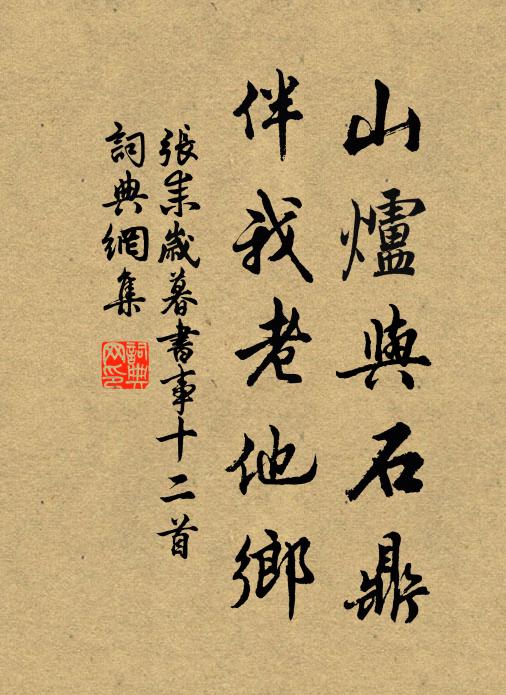 山爐與石鼎
伴我老他鄉
張耒歲暮書事十二首
詞典網集
詞典
网印